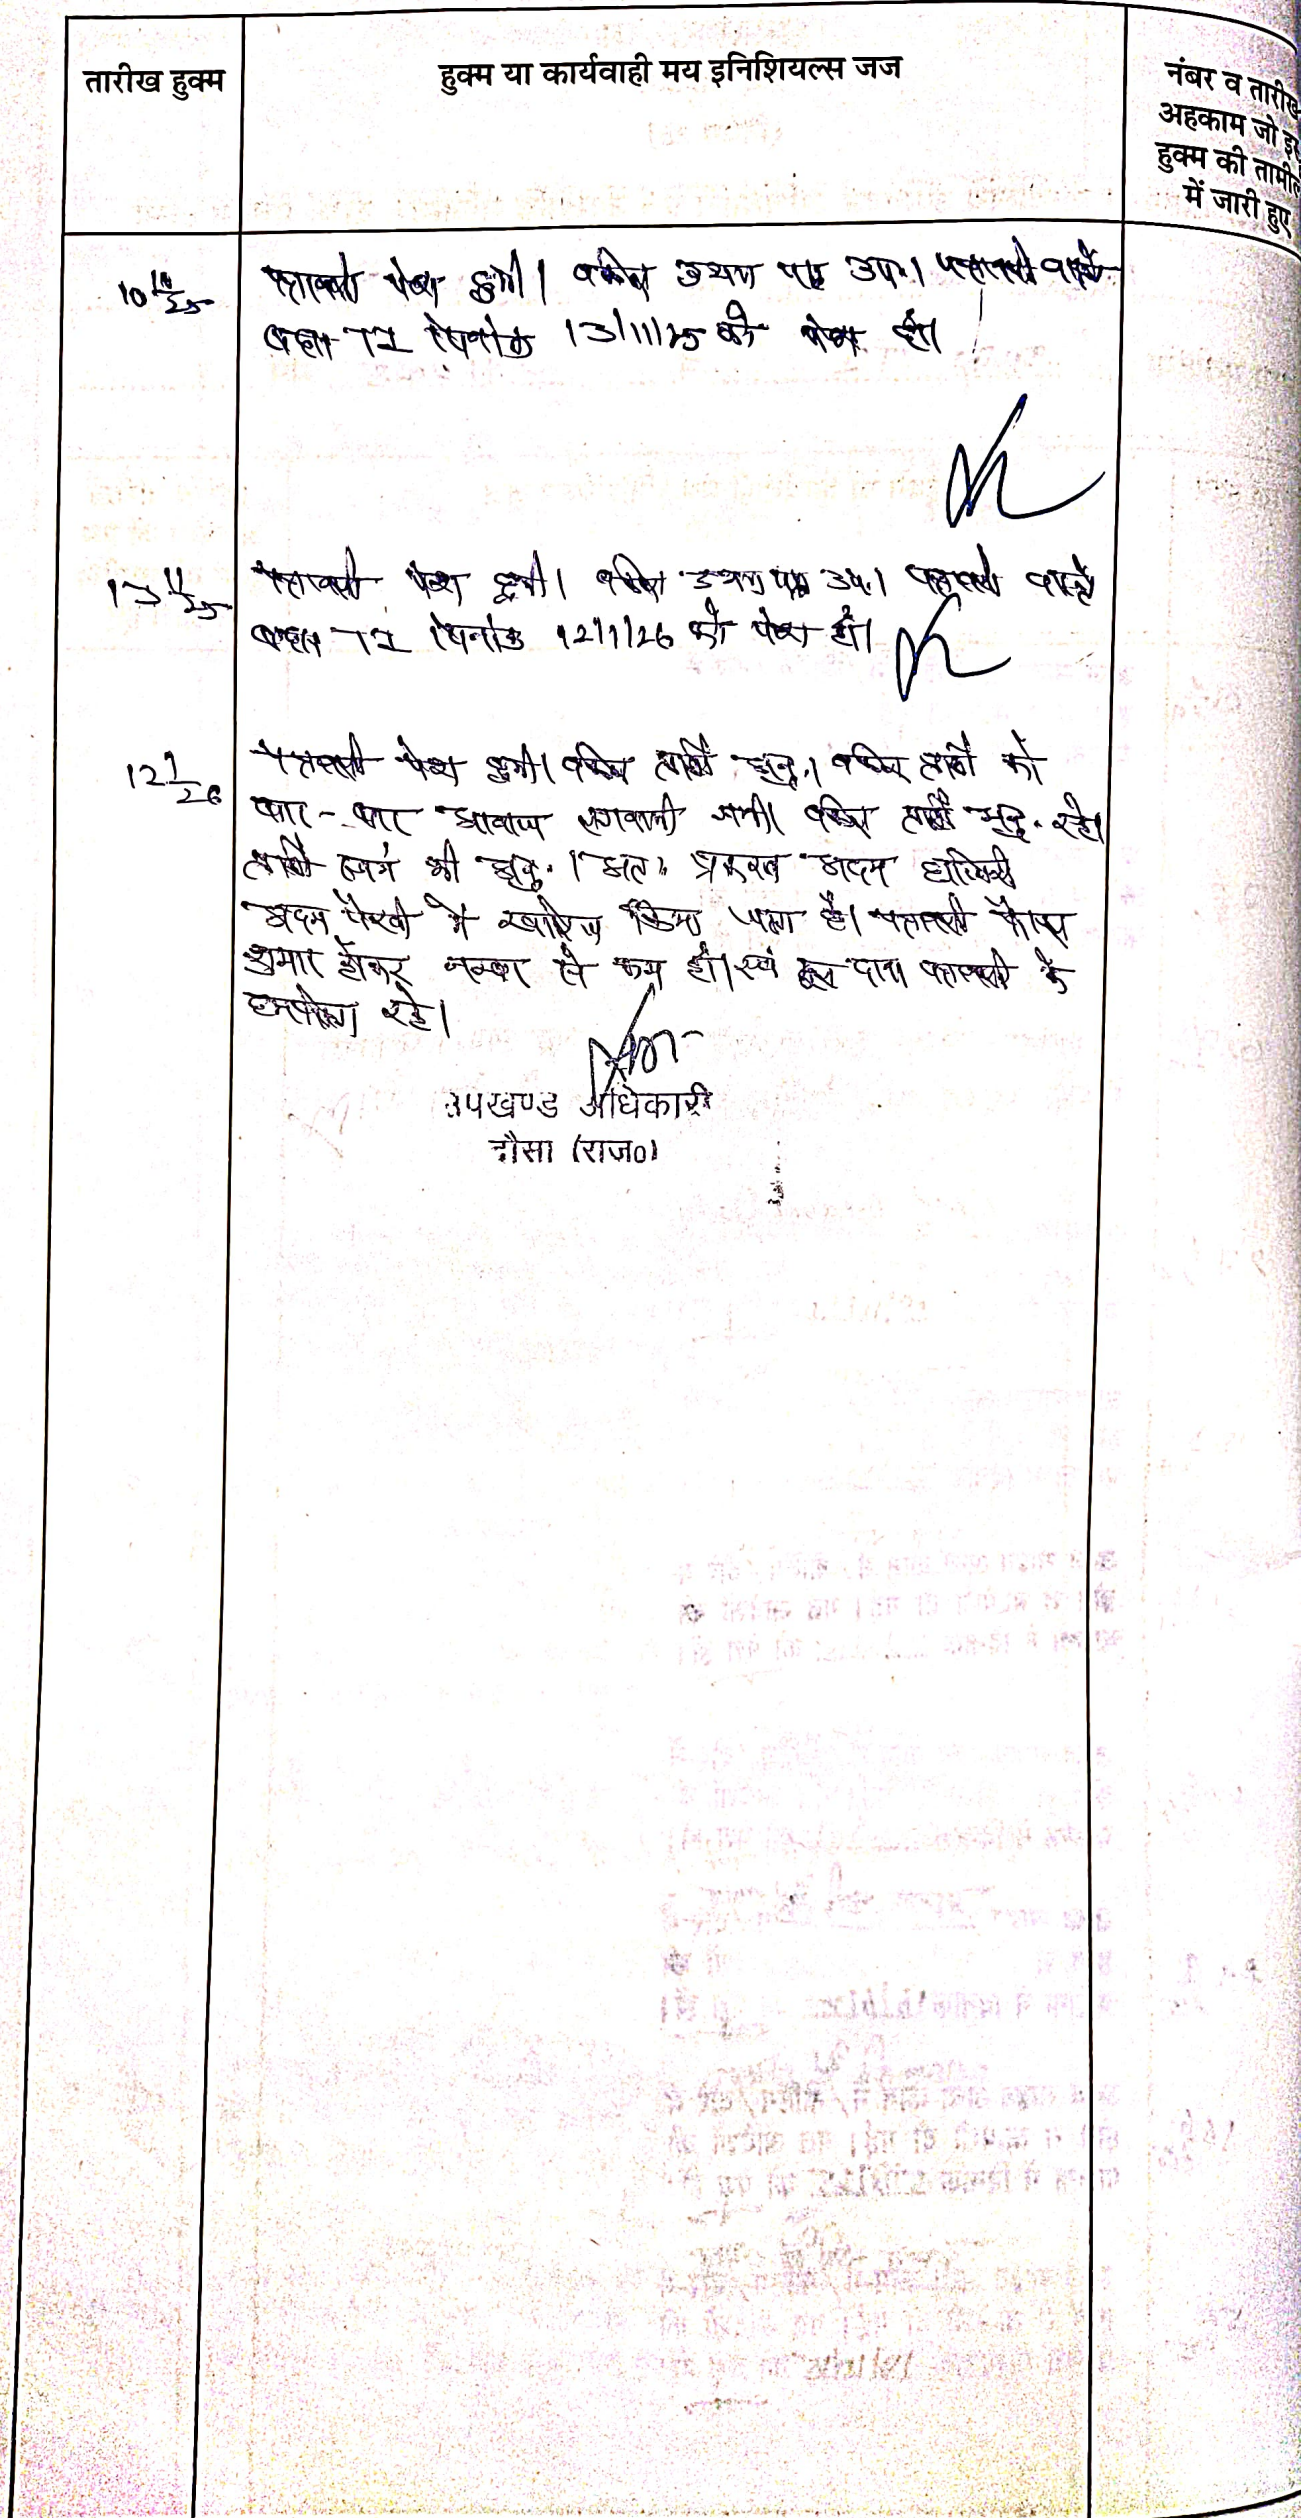 तारीख हुक्म
हुक्म या कार्यवाही मय इनिशियल्स जज
नंबर व तारीख
अहकाम जो इस
हुक्म की तामील
में जारी हुए
10 10/25
पत्रावली पेश हुयी। वकील उभय पक्ष उप.। पत्रावली वास्ते
बहस TI दिनांक 13/11/25 को पेश हो।
13 11/25
पत्रावली पेश हुयी। वकील उभय पक्ष उप.। पत्रावली वास्ते
बहस TI दिनांक 12/1/26 को पेश हो।
12 1/26
पत्रावली पेश हुयी। वकील प्रार्थी अनु.। वकील प्रार्थी को
बार-बार आवाज लगवायी गयी। वकील प्रार्थी अनु. रहे।
प्रार्थी स्वयं भी अनु.। अतः प्रकरण अदम हाजिरी
अदम पैरवी में खारिज किया जाता है। पत्रावली फैसल
शुमार होकर नम्बर से कम हो।
रहे।
उपखण्ड अधिकारी
दौसा (राज0)